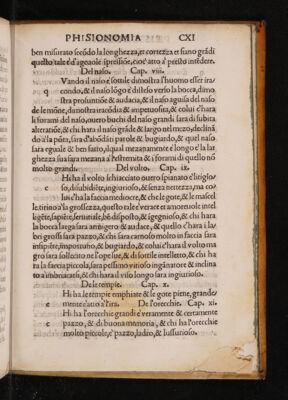 PHISIONOMIA CXI
ben misurato secōdo la longhezza, et cortezza et siano grādi
questo tale è d'ageuole īpressiōe, cioè atto a prestō intēdere.
Del naso. Cap. viii.
Vando il naso è sottile dimostra l'huomo esser ira-
condo, & il naso lōgo è disteso verso la bocca, dimo
stra prosuntiōe & audacia, & il naso aguisa del naso
de le mōne, dimostra inuidia & impetuosità, & colui c'harà
li forami del naso, ouero buchi del naso grandi sara di subita
alteratiōe, & chi hara il naso grāde & largo nel mezo, declinā
do à la pūta, sara d'abōdāti parole & bugiardo, & quel naso
sara eguale & ben fatto, il qual mezanamente è longo è la lar
ghezza sua sara mezana à l'estremita & i forami di quello nō
molto grandi. Del volto. Cap. ix.
Hi ha il volto schiacciato ouero spianato è litigio-
so, disubidiēte, ingiurioso, & senza nettezza, ma co
lui c'ha la faccia mediocre, & che le gote, & le mascel
le tirino à la grossezza, questo tale è verace et amoreuole intel
ligēte, sapiēte, seruitiale, bē disposto, & īgegnioso, & chi hara
la bocca larga sara ambigero & audace, & quello c'hara i la-
bri grossi sara pazzo, & chi sara carnoso molto in faccia sara
insipiēte, importuno, & bugiardo, & colui c'hara il volto ma
gro sara sollecito ne l'opre sue, & di sottile intelletto, & chi ha
ra la faccia piccola, sara pessimo vitioso ingānatore & inclina
to a imbriacarsi, & chi hara il viso longo sara ingiurioso.
De le tempie. Cap. x.
Hi ha le tempie emphiate & le gote piene, grande-
mente è atto a l'ira. De l'orecchie. Cap. xi.
Hi ha l'orecchie grandi è veramente & certamente
pazzo, & di buona memoria, & chi ha l'orecchie
molto piccole, è pazzo, ladro, & lussurioso.